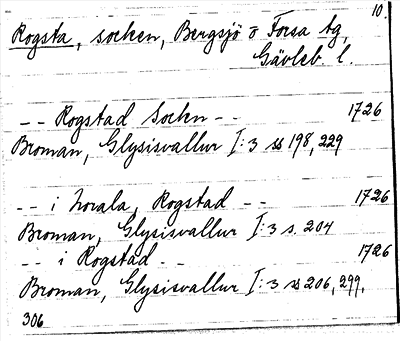 10.
Rogsta, socken, Bergsjö o Forsa tg,
Gävleb. l.
-- Rogstad Sockn -- 1726
Broman, Glysisvallur I:3 ss 198, 229
-- i hovala, Rogstad -- 1726
Broman, Glysisvallur I:3 s. 204
-- i Rogstad -- 1726
Broman, Glysisvallur I:3 ss 206, 299,
306